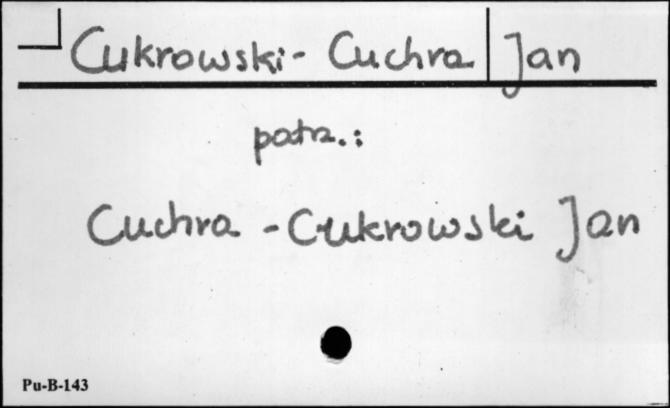 Cukrowski- Cuchra Jan
patrz.:
Cuchra - Cukrowski Jan
Pu-B-143